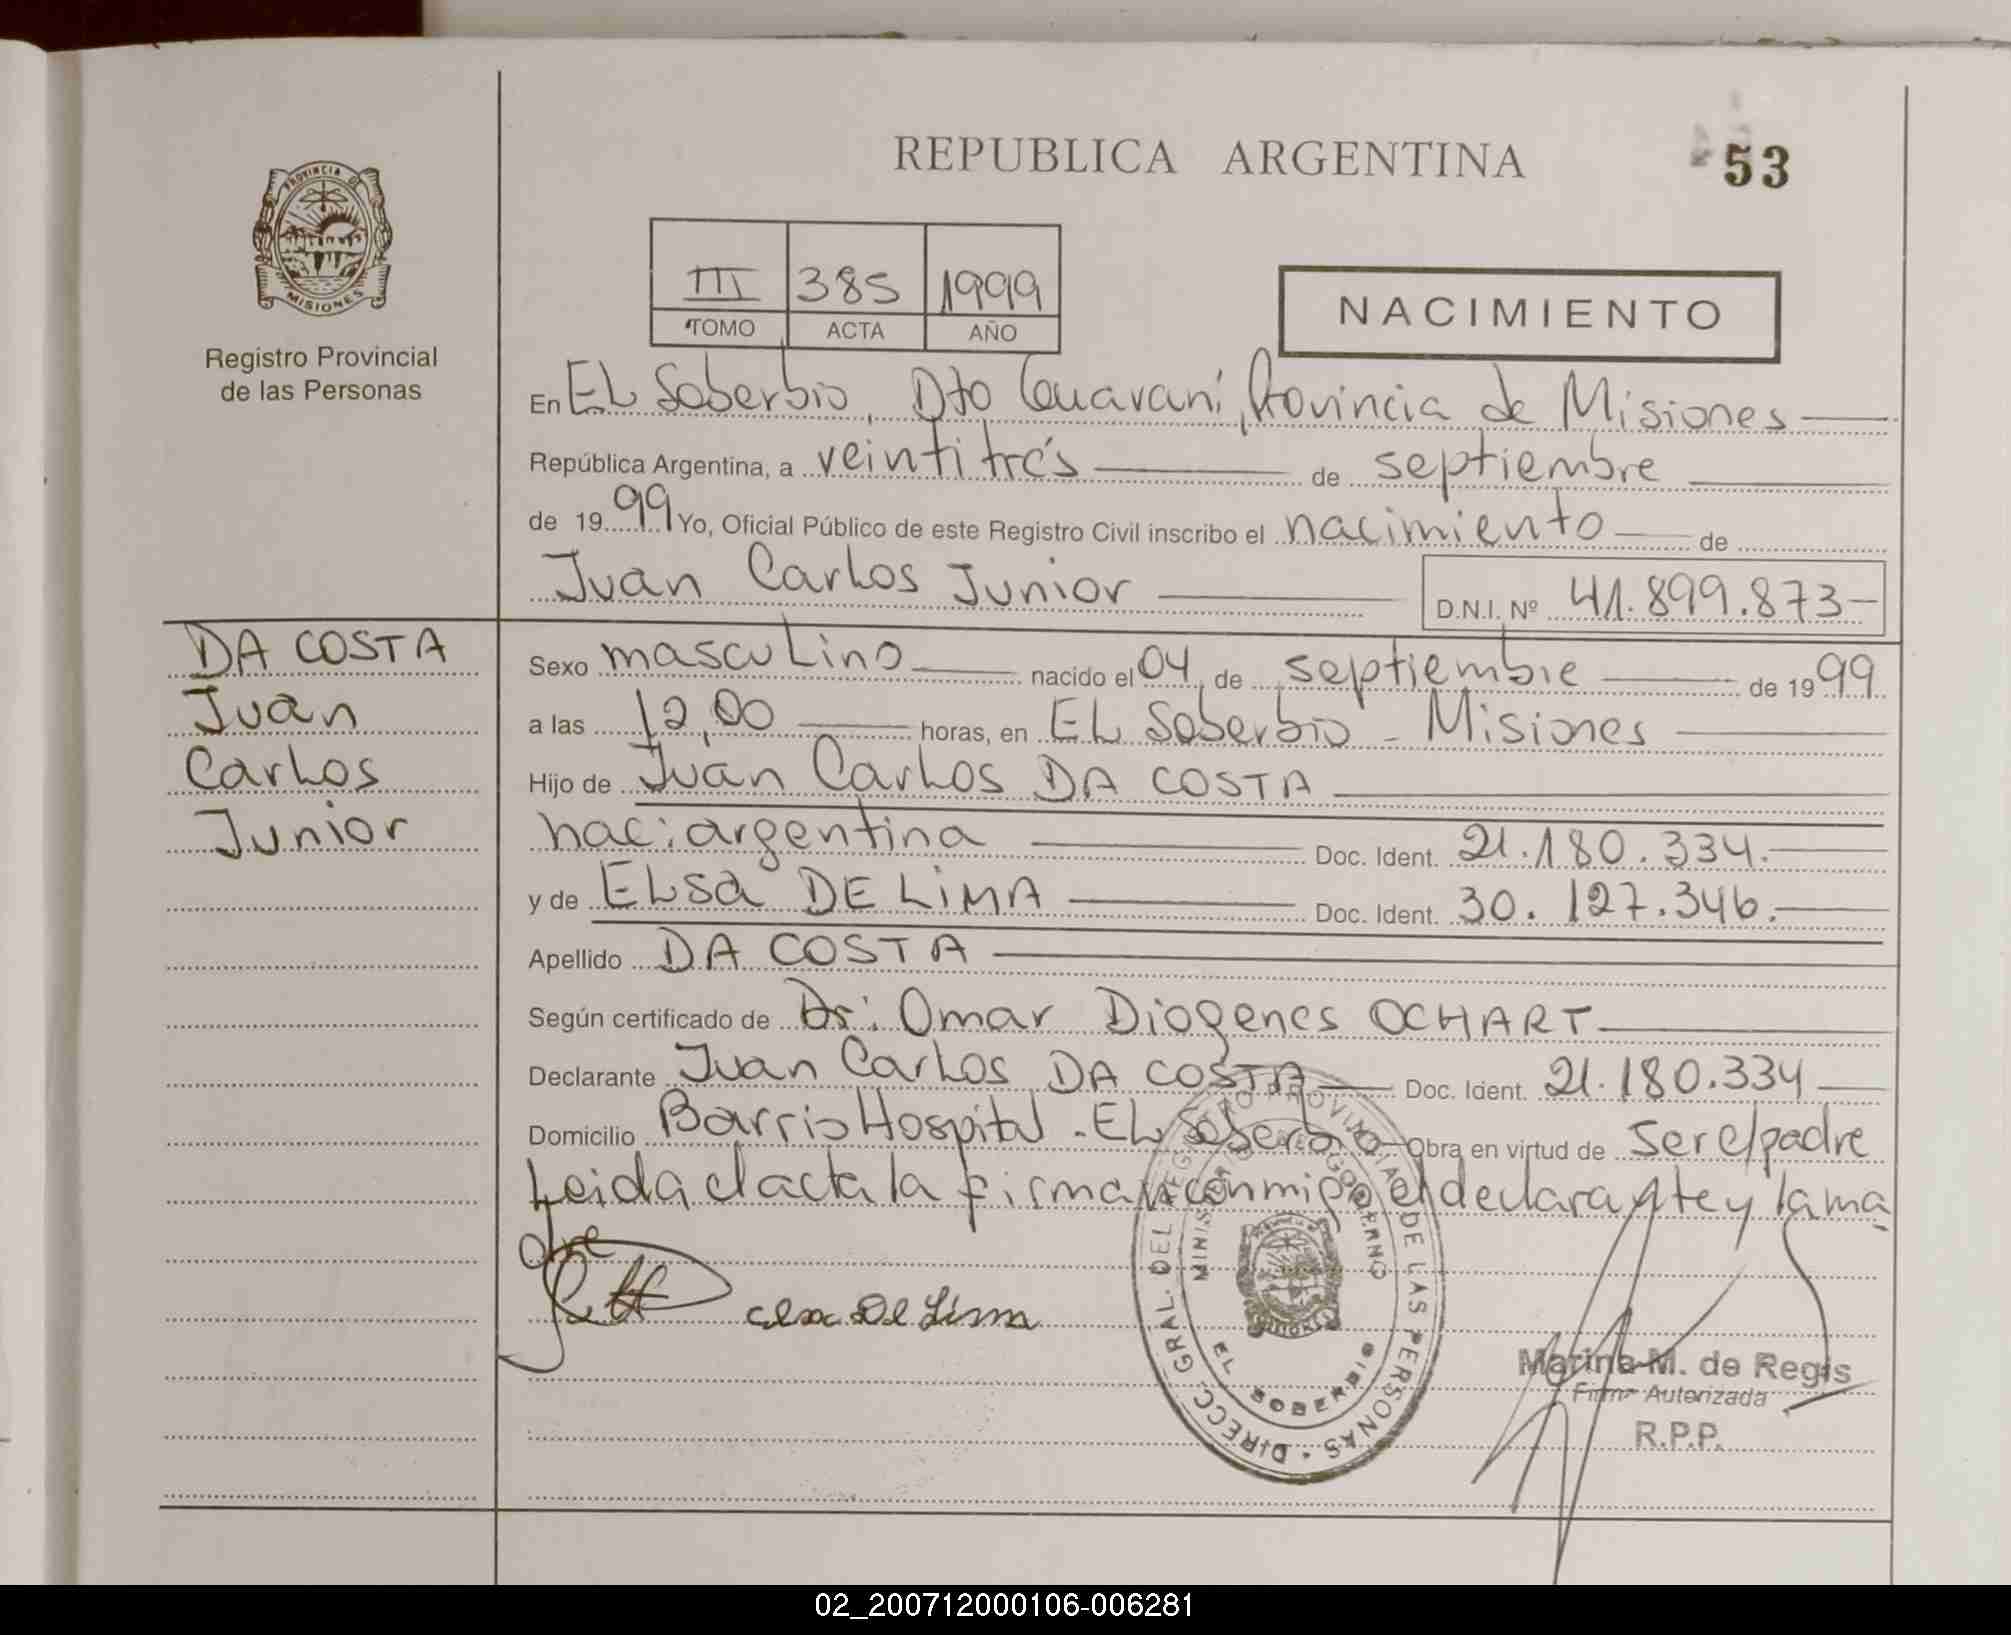 REPUBLICA ARGENTINA
53
PROVINCIA DE
MISIONES
Registro Provincial
de las Personas
III 385 1999
TOMO ACTA AÑO
NACIMIENTO
En EL Soberbio, Dto Guaraní, Provincia de Misiones
República Argentina, a veintitrés de septiembre
de 1999 Yo, Oficial Público de este Registro Civil inscribo el nacimiento de
Juan Carlos Junior D.N.I. Nº 41.899.873
DA COSTA
Juan
Carlos
Junior
Sexo masculino nacido el 04 de septiembre de 1999
a las 12,00 horas, en EL Soberbio - Misiones
Hijo de Juan Carlos DA COSTA
nac: argentina Doc. Ident. 21.180.334.
y de ELsa DE LiMA Doc. Ident. 30.127.346.
Apellido DA COSTA
Según certificado de Dr: Omar Diogenes OCHART
Declarante Juan Carlos DA COSTA Doc. Ident. 21.180.334
Domicilio Barrio Hospital - EL Soberbio Obra en virtud de ser el padre
Leida el acta la firman conmigo el declarante y la ma
dre
elsa De Lima
DIRECC. GRAL. DEL REGISTRO PROVINCIAL DE LAS PERSONAS
MINISTERIO DE GOBIERNO
EL SOBERBIO
Marina M. de Regis
Firma Autorizada
R.P.P.
02_200712000106-006281